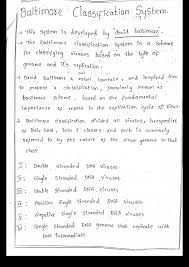 Baltimore Classification System.
→ this System is developed by david baltimore.
→ the baltimore classification system is a Scheme
for classifying viruses based on the type of
genome and its replication.
→ David baltimore a nobel laureate and inspired him
to propose a classification, popularly known as
baltimore scheme, based on the fundamental
importance of mRNA in the replication cycle of virus.
→ Baltimore classification divided all viruses, irrespective
of their host, into classes and each is commonly
referred to by the nature of the virus genome in that
class.
I : Double Stranded DNA Viruses.
II : Single Stranded DNA Viruses.
Double Stranded RNA Viruses.
Positive Single Stranded RNA Viruses.
Negative Single Stranded RNA Viruses.
Single Stranded RNA genome that replicate with
DNA Intermediate.